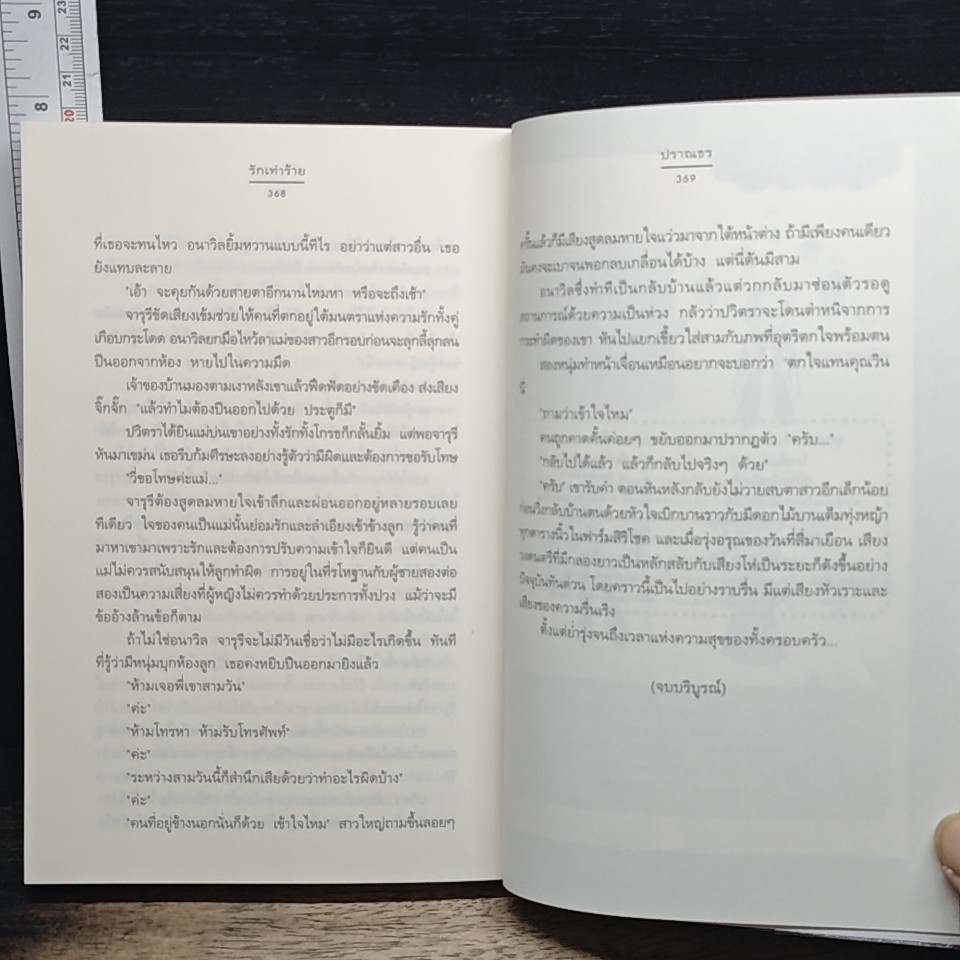 9
8
23
22
21
20
รักเท่าร้าย
368
ที่เธอจะทนไหว อนาวิลยิ้มหวานแบบนี้ทีไร อย่าว่าแต่สาวอื่น เธอ
ยังแทบละลาย
"เอ้า จะคุยกันด้วยสายตาอีกนานไหมหา หรือจะถึงเช้า"
จารุรีขัดเสียงเข้มช่วยให้คนที่ตกอยู่ใต้มนตราแห่งความรักทั้งคู่
เกือบกระโดด อนาวิลยกมือไหว้ลาแม่ของสาวอีกรอบก่อนจะลุกลี้ลุกลน
ปีนออกจากห้อง หายไปในความมืด
เจ้าของบ้านมองตามเงาหลังเขาแล้วฟึดฟัดอย่างขัดเคือง ส่งเสียง
จิ๊กจั๊ก "แล้วทำไมต้องปีนออกไปด้วย ประตูก็มี"
ปวิตราได้ยินแม่บ่นเขาอย่างทั้งรักทั้งโกรธก็กลั้นยิ้ม แต่พอจารุรี
หันมาเขม่น เธอรีบก้มศีรษะลงอย่างรู้ตัวว่ามีผิดและต้องการขอรับโทษ
"วี่ขอโทษค่ะแม่..."
จารุรีต้องสูดลมหายใจเข้าลึกและผ่อนออกอยู่หลายรอบเลย
ทีเดียว ใจของคนเป็นแม่นั้นย่อมรักและลำเอียงเข้าข้างลูก รู้ว่าคนที่
มาหาเขามาเพราะรักและต้องการปรับความเข้าใจก็ยินดี แต่คนเป็น
แม่ไม่ควรสนับสนุนให้ลูกทำผิด การอยู่ในที่รโหฐานกับผู้ชายสองต่อ
สองเป็นความเสี่ยงที่ผู้หญิงไม่ควรทำด้วยประการทั้งปวง แม้ว่าจะมี
ข้ออ้างล้านข้อก็ตาม
ถ้าไม่ใช่อนาวิล จารุรีจะไม่มีวันเชื่อว่าไม่มีอะไรเกิดขึ้น ทันที
ที่รู้ว่ามีหนุ่มบุกห้องลูก เธอคงหยิบปืนออกมายิงแล้ว
"ห้ามเจอพี่เขาสามวัน"
"ค่ะ"
"ห้ามโทรหา ห้ามรับโทรศัพท์"
"ค่ะ"
"ระหว่างสามวันนี้ก็สำนึกเสียด้วยว่าทำอะไรผิดบ้าง"
"ค่ะ"
"คนที่อยู่ข้างนอกนั่นก็ด้วย เข้าใจไหม" สาวใหญ่ถามขึ้นลอยๆ
ปราณธร
369
ครั้นแล้วก็มีเสียงสูดลมหายใจแว่วมาจากใต้หน้าต่าง ถ้ามีเพียงคนเดียว
มันคงจะเบาจนพอกลบเกลื่อนได้บ้าง แต่นี่ดันมีสาม
อนาวิลซึ่งทำทีเป็นกลับบ้านแล้วแต่วกกลับมาซ่อนตัวรอดู
สถานการณ์ด้วยความเป็นห่วง กลัวว่าปวิตราจะโดนตำหนิจากการ
กระทำผิดของเขา หันไปแยกเขี้ยวใส่สามกับภพที่อุตริตกใจพร้อมตน
สองหนุ่มทำหน้าเจื่อนเหมือนอยากจะบอกว่า 'ตกใจแทนคุณวิน
"ถามว่าเข้าใจไหม"
คนถูกคาดคั้นค่อยๆ ขยับออกมาปรากฏตัว "ครับ..."
"กลับไปได้แล้ว แล้วก็กลับไปจริงๆ ด้วย"
"ครับ" เขารับคำ ตอนหันหลังกลับยังไม่วายสบตาสาวอีกเล็กน้อย
ก่อนวิ่งกลับบ้านตนด้วยหัวใจเบิกบานราวกับมีดอกไม้บานเต็มทุ่งหญ้า
ทุกตารางนิ้วในฟาร์มสิริโชค และเมื่อรุ่งอรุณของวันที่สี่มาเยือน เสียง
วงดนตรีที่มีกลองยาวเป็นหลักสลับกับเสียงโห่เป็นระยะก็ดังขึ้นอย่าง
ปัจจุบันทันด่วน โดยคราวนี้เป็นไปอย่างราบรื่น มีแต่เสียงหัวเราะและ
เสียงของความรื่นเริง
ตั้งแต่ย่ำรุ่งจนถึงเวลาแห่งความสุขของทั้งครอบครัว...
(จบบริบูรณ์)